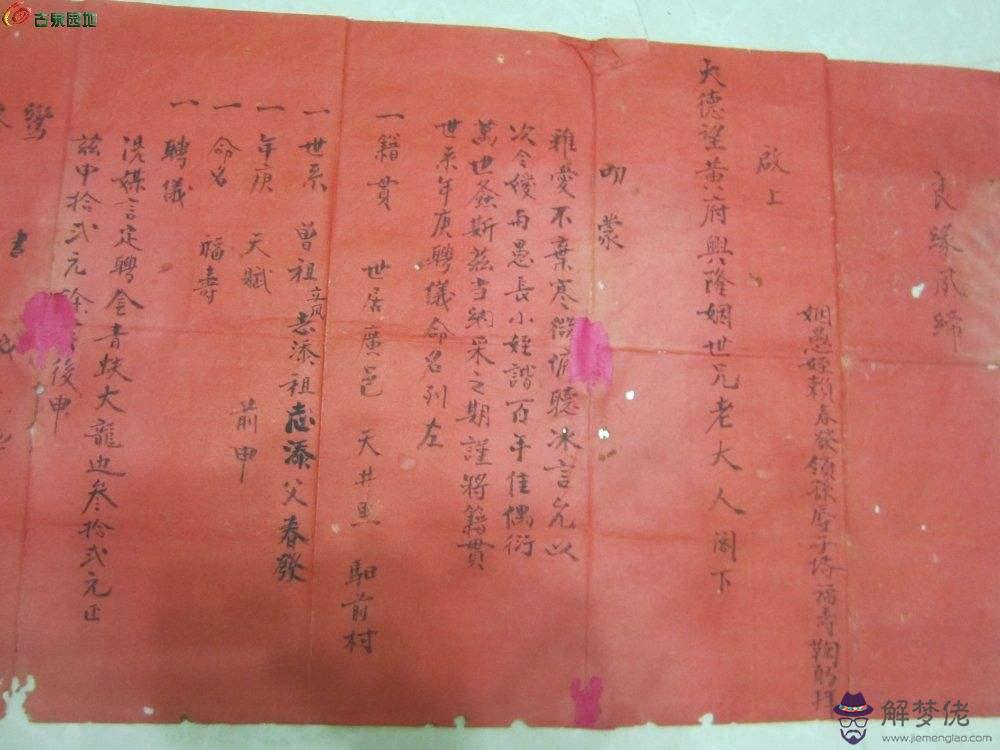 良緣夙締
姻愚姪賴春發領孫辱子壻福壽鞠躬拜
啟上
大德望黃府興隆姻世兄老大人閣下
叨蒙
雅愛不棄寒微 聽冰言允以
次令嬡與愚長小姪諧百年佳偶衍
萬世螽斯茲當納采之期謹將籍貫
世系年庚聘儀命名列左
一籍貫 世居廣邑 天井 前村
一世系 曾祖立凤志添祖志添父春發
一年庚 天賦 前申
一命名 福壽
一聘儀
憑媒言定聘金青蚨大龍邊叁拾弍元正
茲申拾弍元餘 後申
鸞書
古泉园地
解梦佬
www.jiemenglao.com